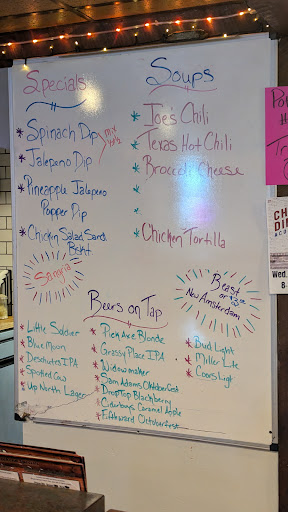 Specials
* Spinach Dip
* Jalapeno Dip
* Pineapple Jalapeno
Popper Dip
* Chicken Salad Sand.
Sangria
Soups
* Joe's Chili
* Texas Hot Chili
* Broccoli Cheese
*
*
* Chicken Tortilla
Beast or
New Amsterdam
Beers on Tap
* Little Soldier
* Blue Moon
* Deschutes IPA
* Spotted Cow
* Up North Lager
* Pick Axe Blonde
* Grassy Place IPA
* Widowmaker
* Sam Adams Oktoberfest
* Drop Top Blackberry
* Ciderboys Caramel Apple
* Fifth Ward Octoberfest
* Bud Light
* Miller Lite
* Coors Light